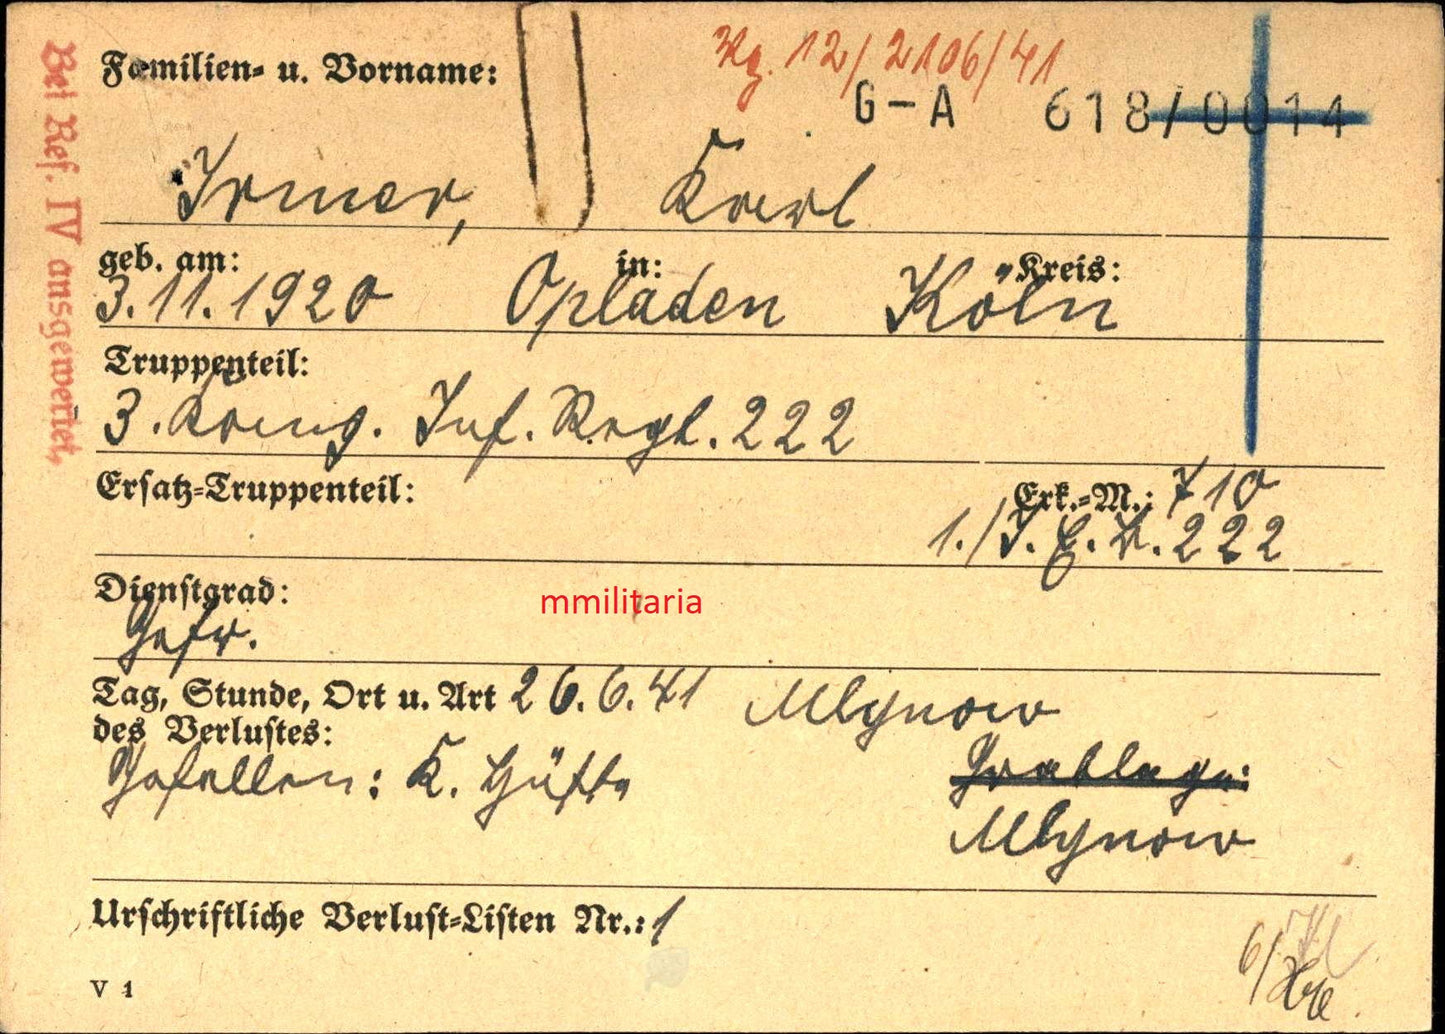 Bei Ref. IV ausgewertet.
Ng. 12/2106/41
Familien- u. Vorname:
G-A 618/0014
Irmer, Karl
geb. am: in: Kreis:
3.11.1920 Opladen Köln
Truppenteil:
3. Komp. Inf. Regt. 222
Ersatz-Truppenteil: Erk.-M.: 710
1./I.E.B. 222
Dienstgrad:
Gefr.
Tag, Stunde, Ort u. Art 26.6.41 Mlynow
des Verlustes:
Gefallen: K. Hüfte Grablage:
Mlynow
Urschriftliche Verlust-Listen Nr.: 1
V 1
mmilitaria